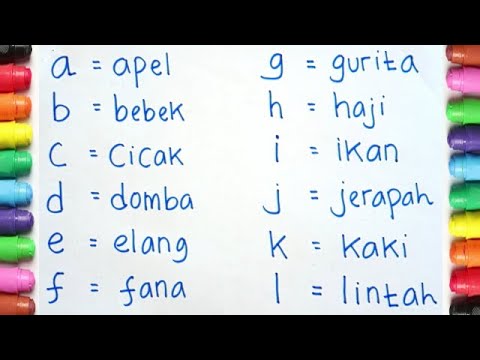 a = apel
b = bebek
c = cicak
d = domba
e = elang
f = fana
g = gurita
h = haji
i = ikan
j = jerapah
k = kaki
l = lintah